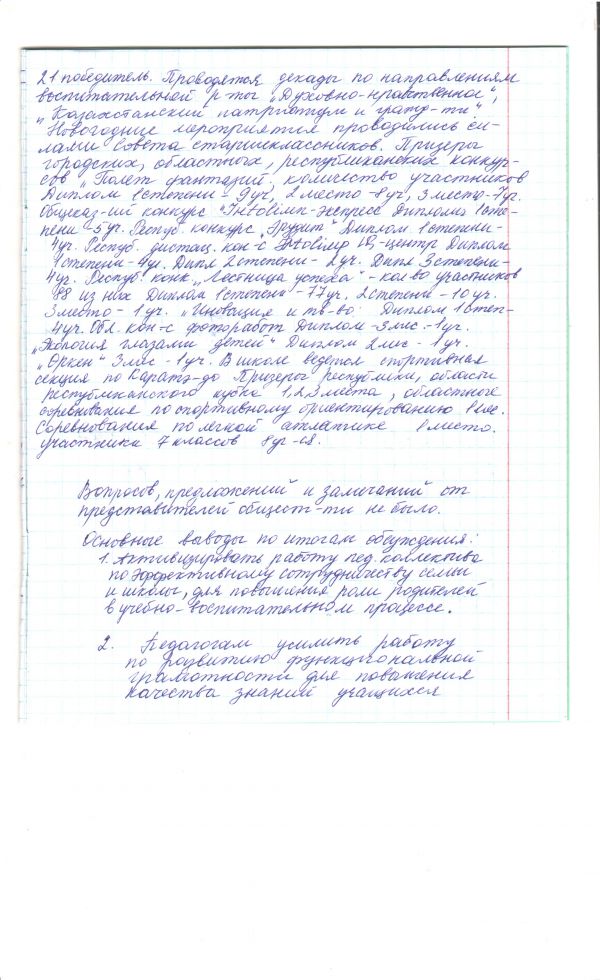 21 победитель. Проводятся декады по направлениям
воспитательной р-ты „Духовно-нравственное“,
„Казахстанский патриотизм и гражд-ть“.
Новогодние мероприятия проводились си-
лами Совета старшеклассников. Призеры
городских, областных, республиканских конкур-
сов „Полет фантазий, количество участников
Диплом 1степени - 9уч, 2 место -8уч, 3место-7уч.
Общеказ-ий конкурс "Intolimp-экспресс Диплома 1сте-
пени -5уч. Респуб. конкурс „Эрудит“ Диплом 1степени-
4уч. Респуб. дистанц. кон-с Intolimp центр Диплом
1степени-4уч. Дипл 2степени- 2уч. Дипл 3степени-
4уч. Респуб. конк. „Лестница успеха“ - кол во участников
88 из них Диплом 1степени - 77уч, 2степени -10уч.
3место - 1уч. „Иновация и тв-во: Диплом 1степ-
4уч. Обл. кон-с фоторабот Диплом -3мс.-1уч.
„Экология глазами детей“ Диплом 2мс - 1уч.
„Оркен“ 3мс - 1уч. В школе ведется спортивная
секция по Каратэ-до Призеры республики, области
республиканского кубка 1,2,3 места, областное
соревнование по спортивному ориентированию
Соревнования по легкой атлетике 1место.
участники 7 классов
Вопросов, предложений и замечаний от
представителей общест-ти не было.
Основные выводы по итогам обсуждения:
1. Активизировать работу пед. коллектива
по эффективному сотрудничеству семьи
и школы, для повышения роли родителей
в учебно-воспитательном процессе.
2. Педагогам усилить работу
по развитию функциональной
грамотности для повышения
качества знаний учащихся